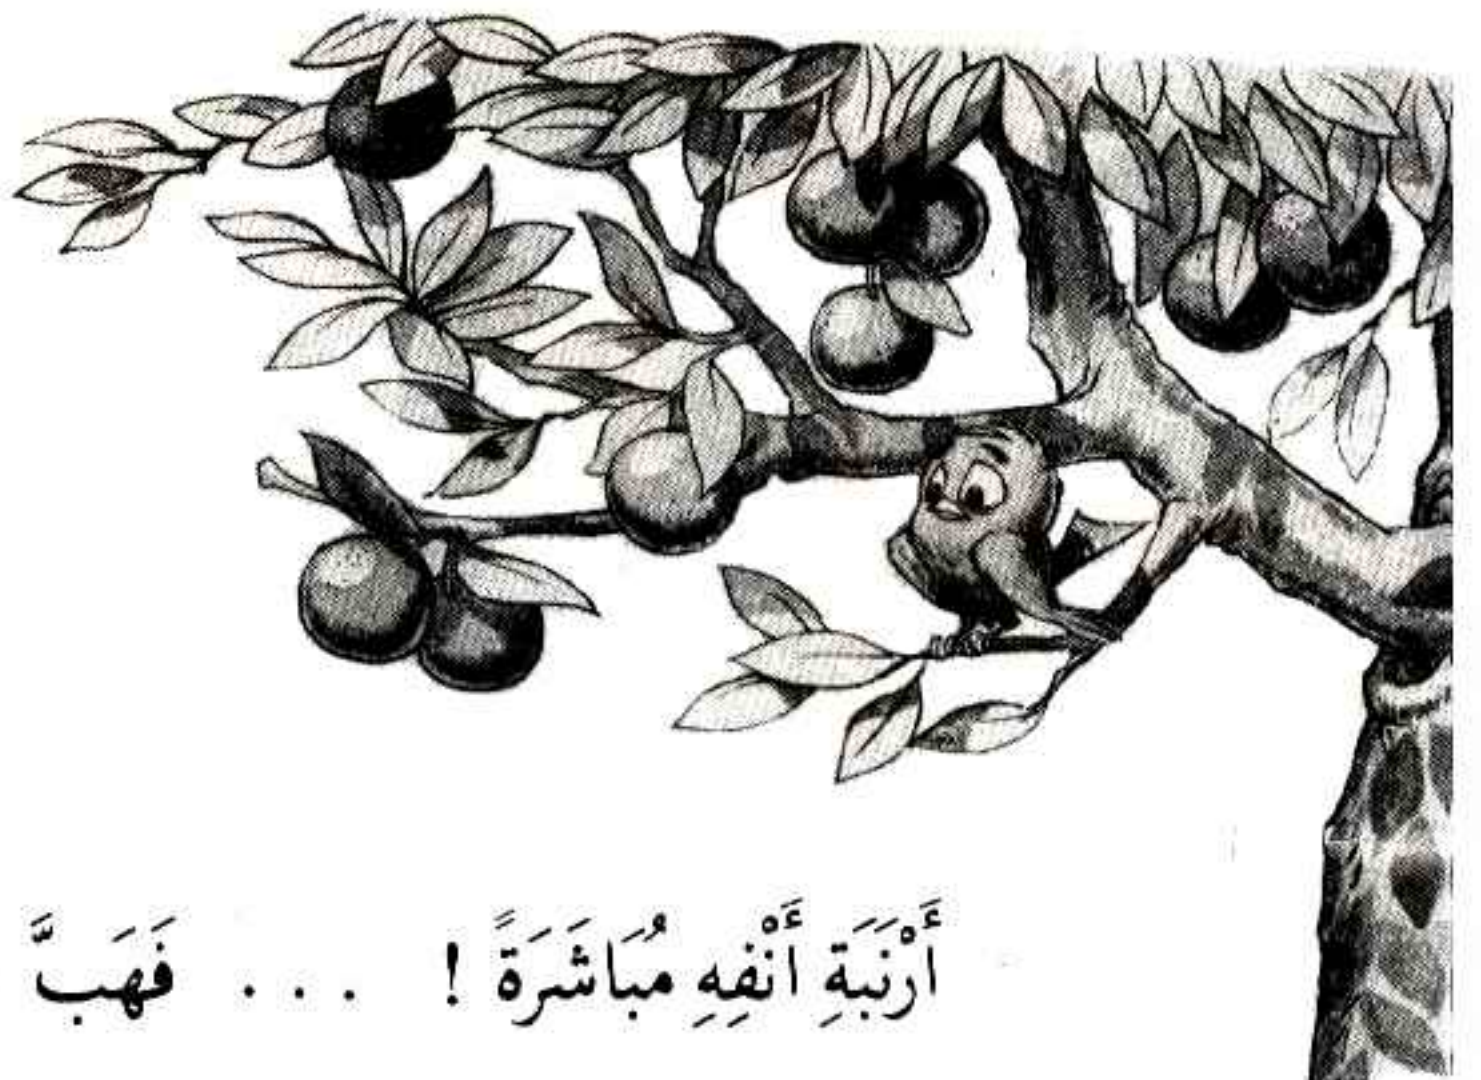 أَرْنَبَةِ أَنْفِهِ مُبَاشَرَةً ! . . . فَهَبَّ